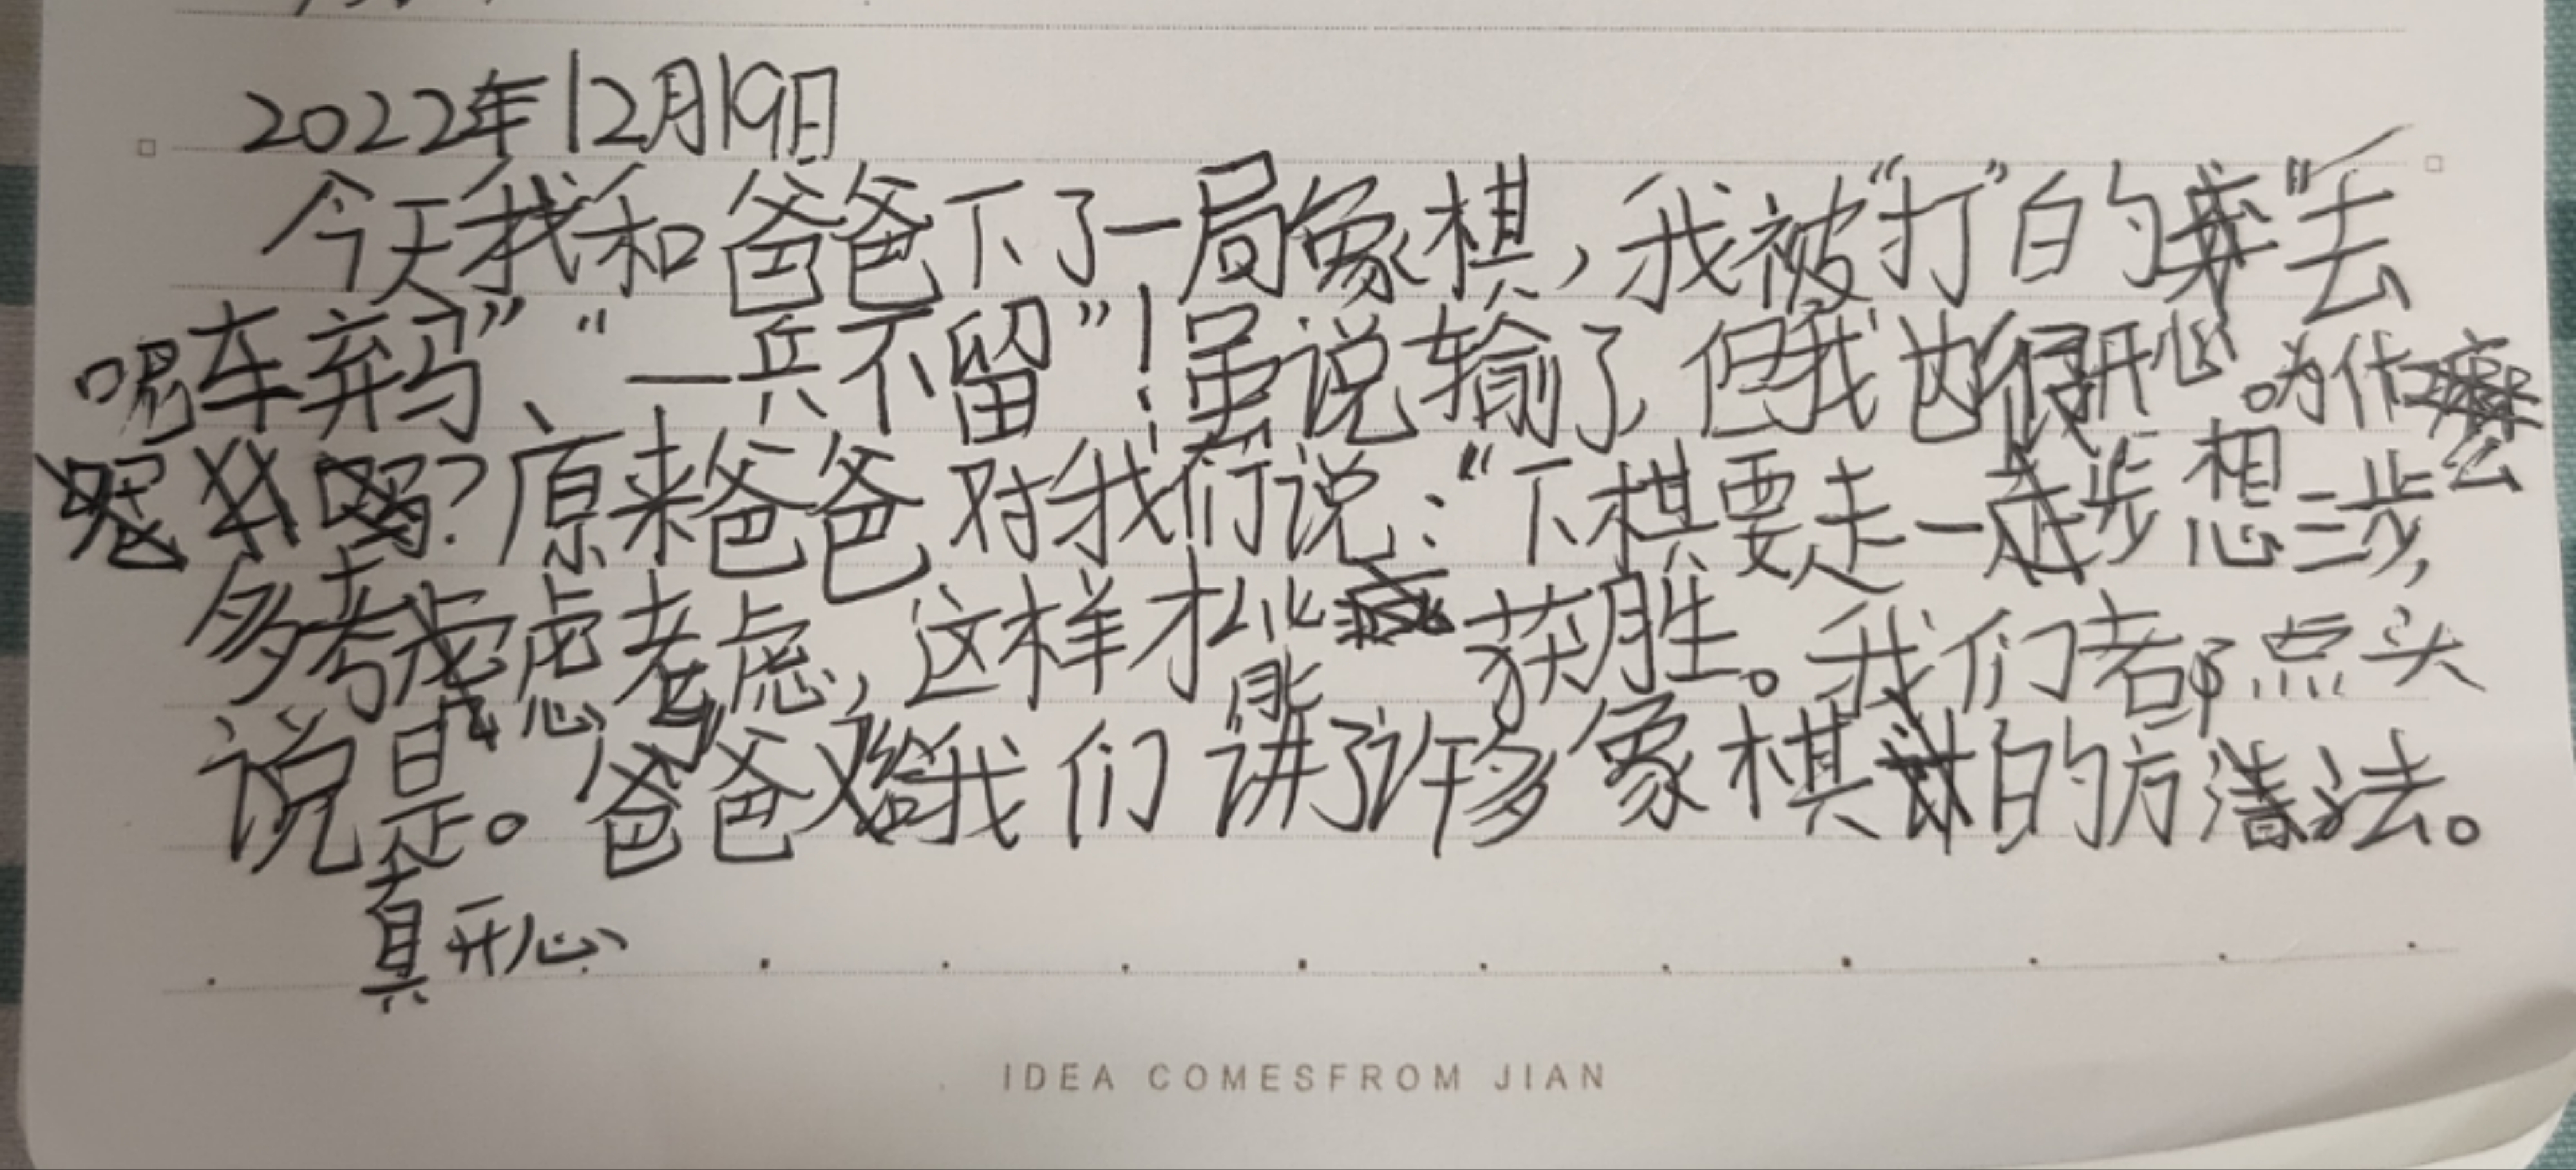 2022年12月19日
今天我和爸爸下了一局象棋，我被“打”的“丢
车弃马”、“一兵不留”！虽说输了，但我也很开心。为什么
？原来爸爸对我们说：“下棋要走一步想三步，
多考虑考虑，这样才能获胜。我们都点头
说是。爸爸给我们讲了许多象棋的方法。
真开心
IDEA COMESFROM JIAN